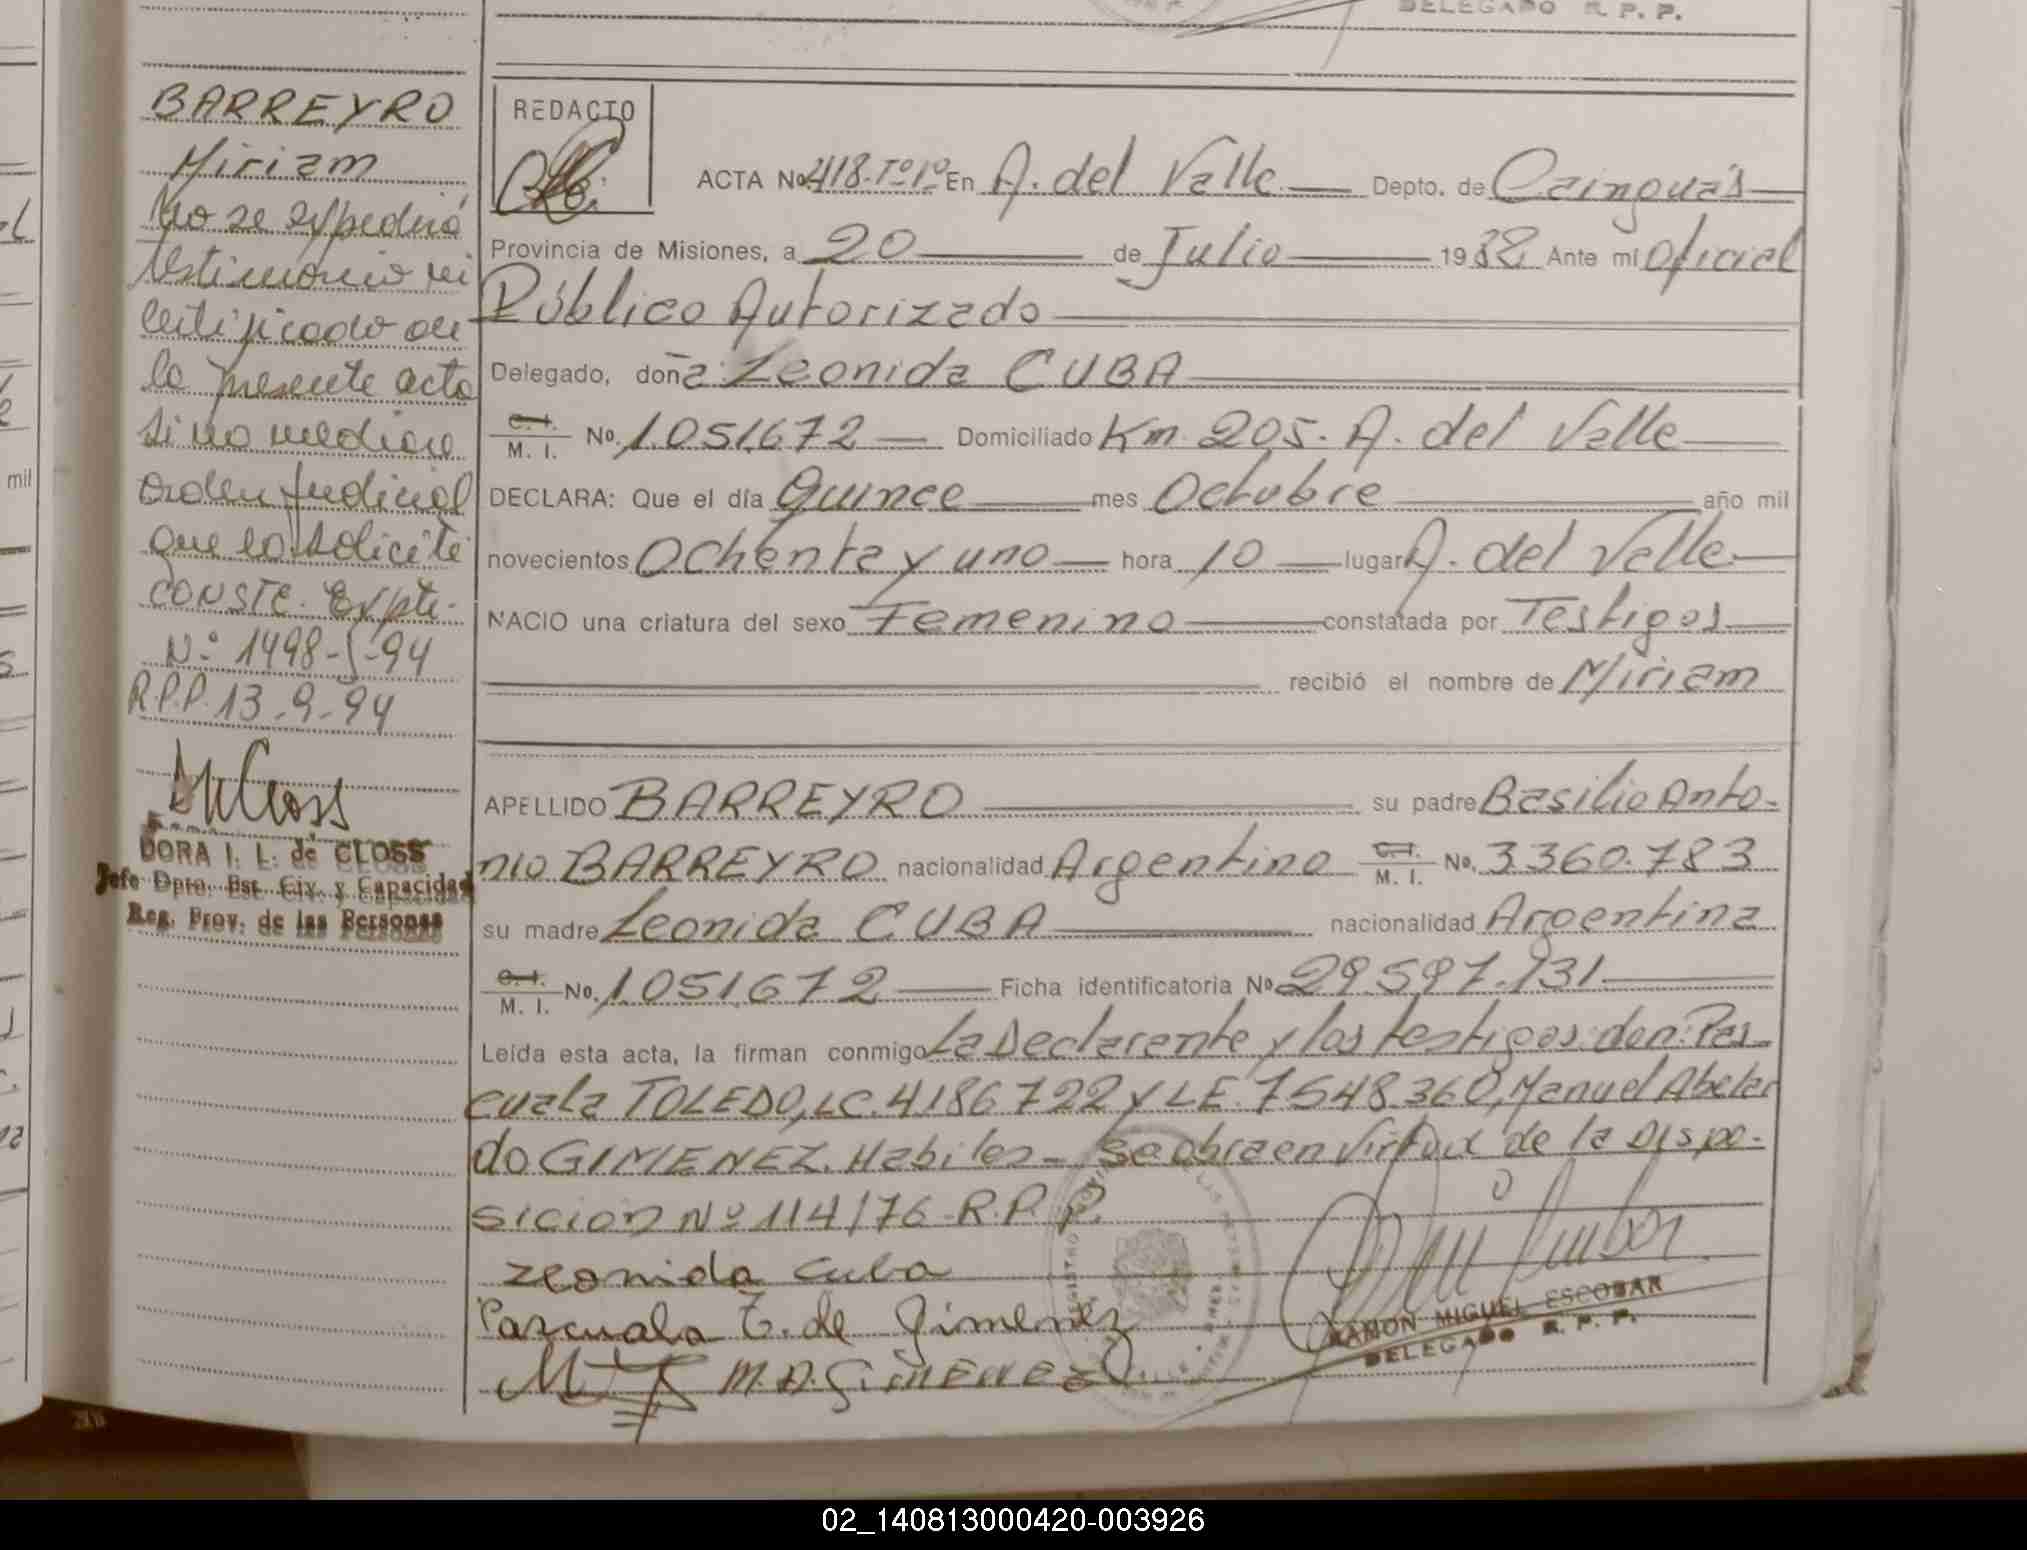 DELEGADO R. P. P.
BARREYRO
Miriam
No se expedirá
testimonio ni
certificado de
la presente acta
si no mediare
orden judicial
que lo solicite
CONSTE. Expte.
Nº 1498-S-94
R.P.P. 13-9-94
DORA I. L. de CLOSS
Jefe Dpto. Est. Civ. y Capacidad
Reg. Prov. de las Personas
REDACTO
ACTA Nº 418-Tº1º En A. del Valle Depto. de Cainguás
Provincia de Misiones, a 20 de Julio 1982 Ante mi Oficial
Público Autorizado
Delegado, doña Leonida CUBA
C.I.
M. I. No. 1.051.672 Domiciliado Km. 205. A. del Valle
DECLARA: Que el día Quince mes Octubre año mil
novecientos Ochenta y uno hora 10 lugar A. del Valle
NACIO una criatura del sexo Femenino constatada por Testigos
recibió el nombre de Miriam
APELLIDO BARREYRO su padre Basilio Anto-
nio BARREYRO nacionalidad Argentino C.I. M. I. No. 3360.783
su madre Leonida CUBA nacionalidad Argentina
C.I.
M. I. No. 1.051.672 Ficha identificatoria Nº 29.597.931
Leída esta acta, la firman conmigo La Declarante y los testigos: don: Pas-
cuala TOLEDO, LC. 4186722 y LE. 7548.360, Manuel Abelar
do GIMENEZ. Habiles - Se obra en Virtud de la Dispo-
sicion Nº 114/76-R.P.P.
Leonida Cuba
Pascuala T. de Gimenez
M.A. GIMENEZ
RAMON MIGUEL ESCOBAR
DELEGADO R. P. P.
02_140813000420-003926